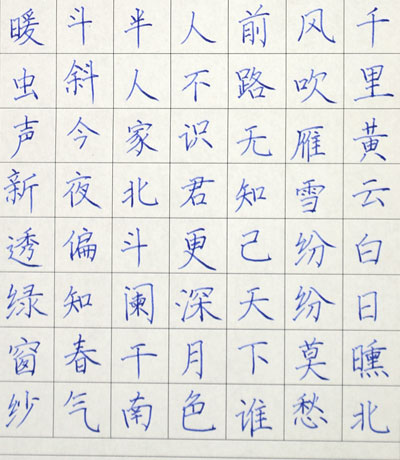 千里黄云白日曛北
风吹雁雪纷纷莫愁
前路无知己天下谁
人不识君更深月色
半人家北斗阑干南
斗斜今夜偏知春气
暖虫声新透绿窗纱